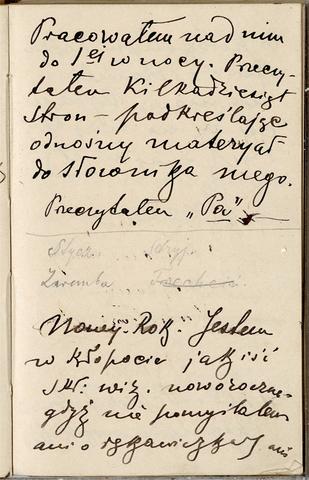 Pracowałem nad nim
do 1ej w nocy. Przeczy-
tałem kilkadziesiąt
stron – podkreślając
odnośny materyał
do słownika mego.
Przeczytałem „Pa”
Stycz.
Zaremba
Nowy Rok. Jestem
w kłopocie jakiś
noworoczne
gdyż nie pomyślałem
ani o rękawiczkach ani